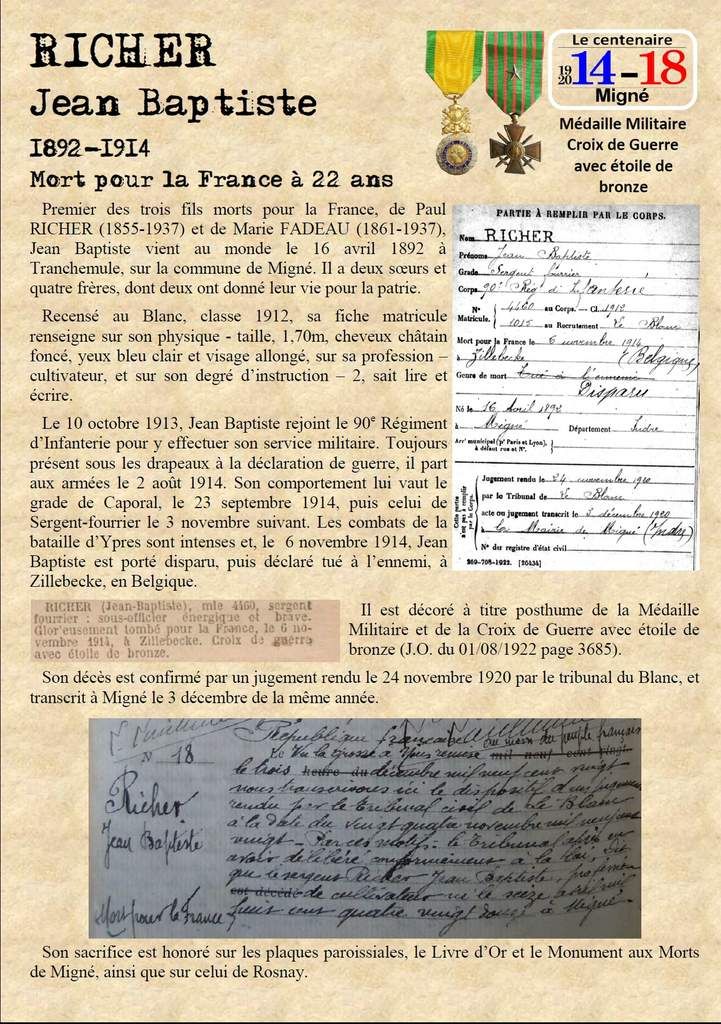 RICHER
Jean Baptiste
1892-1914
Mort pour la France à 22 ans
Le centenaire
1920
14-18
Migné
Médaille Militaire
Croix de Guerre
avec étoile de
bronze
Premier des trois fils morts pour la France, de Paul
RICHER (1855-1937) et de Marie FADEAU (1861-1937),
Jean Baptiste vient au monde le 16 avril 1892 à
Tranchemule, sur la commune de Migné. Il a deux sœurs et
quatre frères, dont deux ont donné leur vie pour la patrie.
Recensé au Blanc, classe 1912, sa fiche matricule
renseigne sur son physique - taille, 1,70m, cheveux châtain
foncé, yeux bleu clair et visage allongé, sur sa profession –
cultivateur, et sur son degré d'instruction – 2, sait lire et
écrire.
Le 10 octobre 1913, Jean Baptiste rejoint le 90e Régiment
d'Infanterie pour y effectuer son service militaire. Toujours
présent sous les drapeaux à la déclaration de guerre, il part
aux armées le 2 août 1914. Son comportement lui vaut le
grade de Caporal, le 23 septembre 1914, puis celui de
Sergent-fourrier le 3 novembre suivant. Les combats de la
bataille d'Ypres sont intenses et, le 6 novembre 1914, Jean
Baptiste est porté disparu, puis déclaré tué à l'ennemi, à
Zillebecke, en Belgique.
PARTIE À REMPLIR PAR LE CORPS.
Nom RICHER
Prénoms Jean Baptiste
Grade Sergent fourrier
Corps 90e Rég d'Infanterie
N° Matricule. 4460 au Corps. — Cl. 1912
1015 au Recrutement Le Blanc
Mort pour la France le 6 novembre 1914
à Zillebecke (Belgique)
Genre de mort Tué à l'ennemi
Disparu
Né le 16 Avril 1892
à Migné Département Indre
Arr' municipal (p' Paris et Lyon),
à défaut rue et N°.
Cette partie n'est pas à remplir par le Corps.
Jugement rendu le 24 novembre 1920
par le Tribunal de Le Blanc
acte ou jugement transcrit le 3 décembre 1920
à la Mairie de Migné (Indre)
N° du registre d'état civil
269-708-1922. [26434]
RICHER (Jean-Baptiste), mle 4460, sergent
fourrier : sous-officier énergique et brave.
Glorieusement tombé pour la France, le 6 no-
vembre 1914, à Zillebecke. Croix de guerre
avec étoile de bronze.
Il est décoré à titre posthume de la Médaille
Militaire et de la Croix de Guerre avec étoile de
bronze (J.O. du 01/08/1922 page 3685).
Son décès est confirmé par un jugement rendu le 24 novembre 1920 par le tribunal du Blanc, et
transcrit à Migné le 3 décembre de la même année.
N° 18
Richer
Jean Baptiste
Mort pour la France
République française au nom du peuple français
Le
le trois heure du décembre mil neuf cent vingt
nous transcrivons ici le dispositif d'un jugement
rendu par le tribunal civil de Le Blanc
à la date du vingt quatre novembre mil neuf cent
vingt - Par ces motifs - le Tribunal après en
avoir délibéré conformément à la loi, Dit
que le sergent Richer Jean Baptiste, profession
est décédé de cultivateur né le seize avril mil
huit cent quatre vingt douze à Migné
Son sacrifice est honoré sur les plaques paroissiales, le Livre d'Or et le Monument aux Morts
de Migné, ainsi que sur celui de Rosnay.